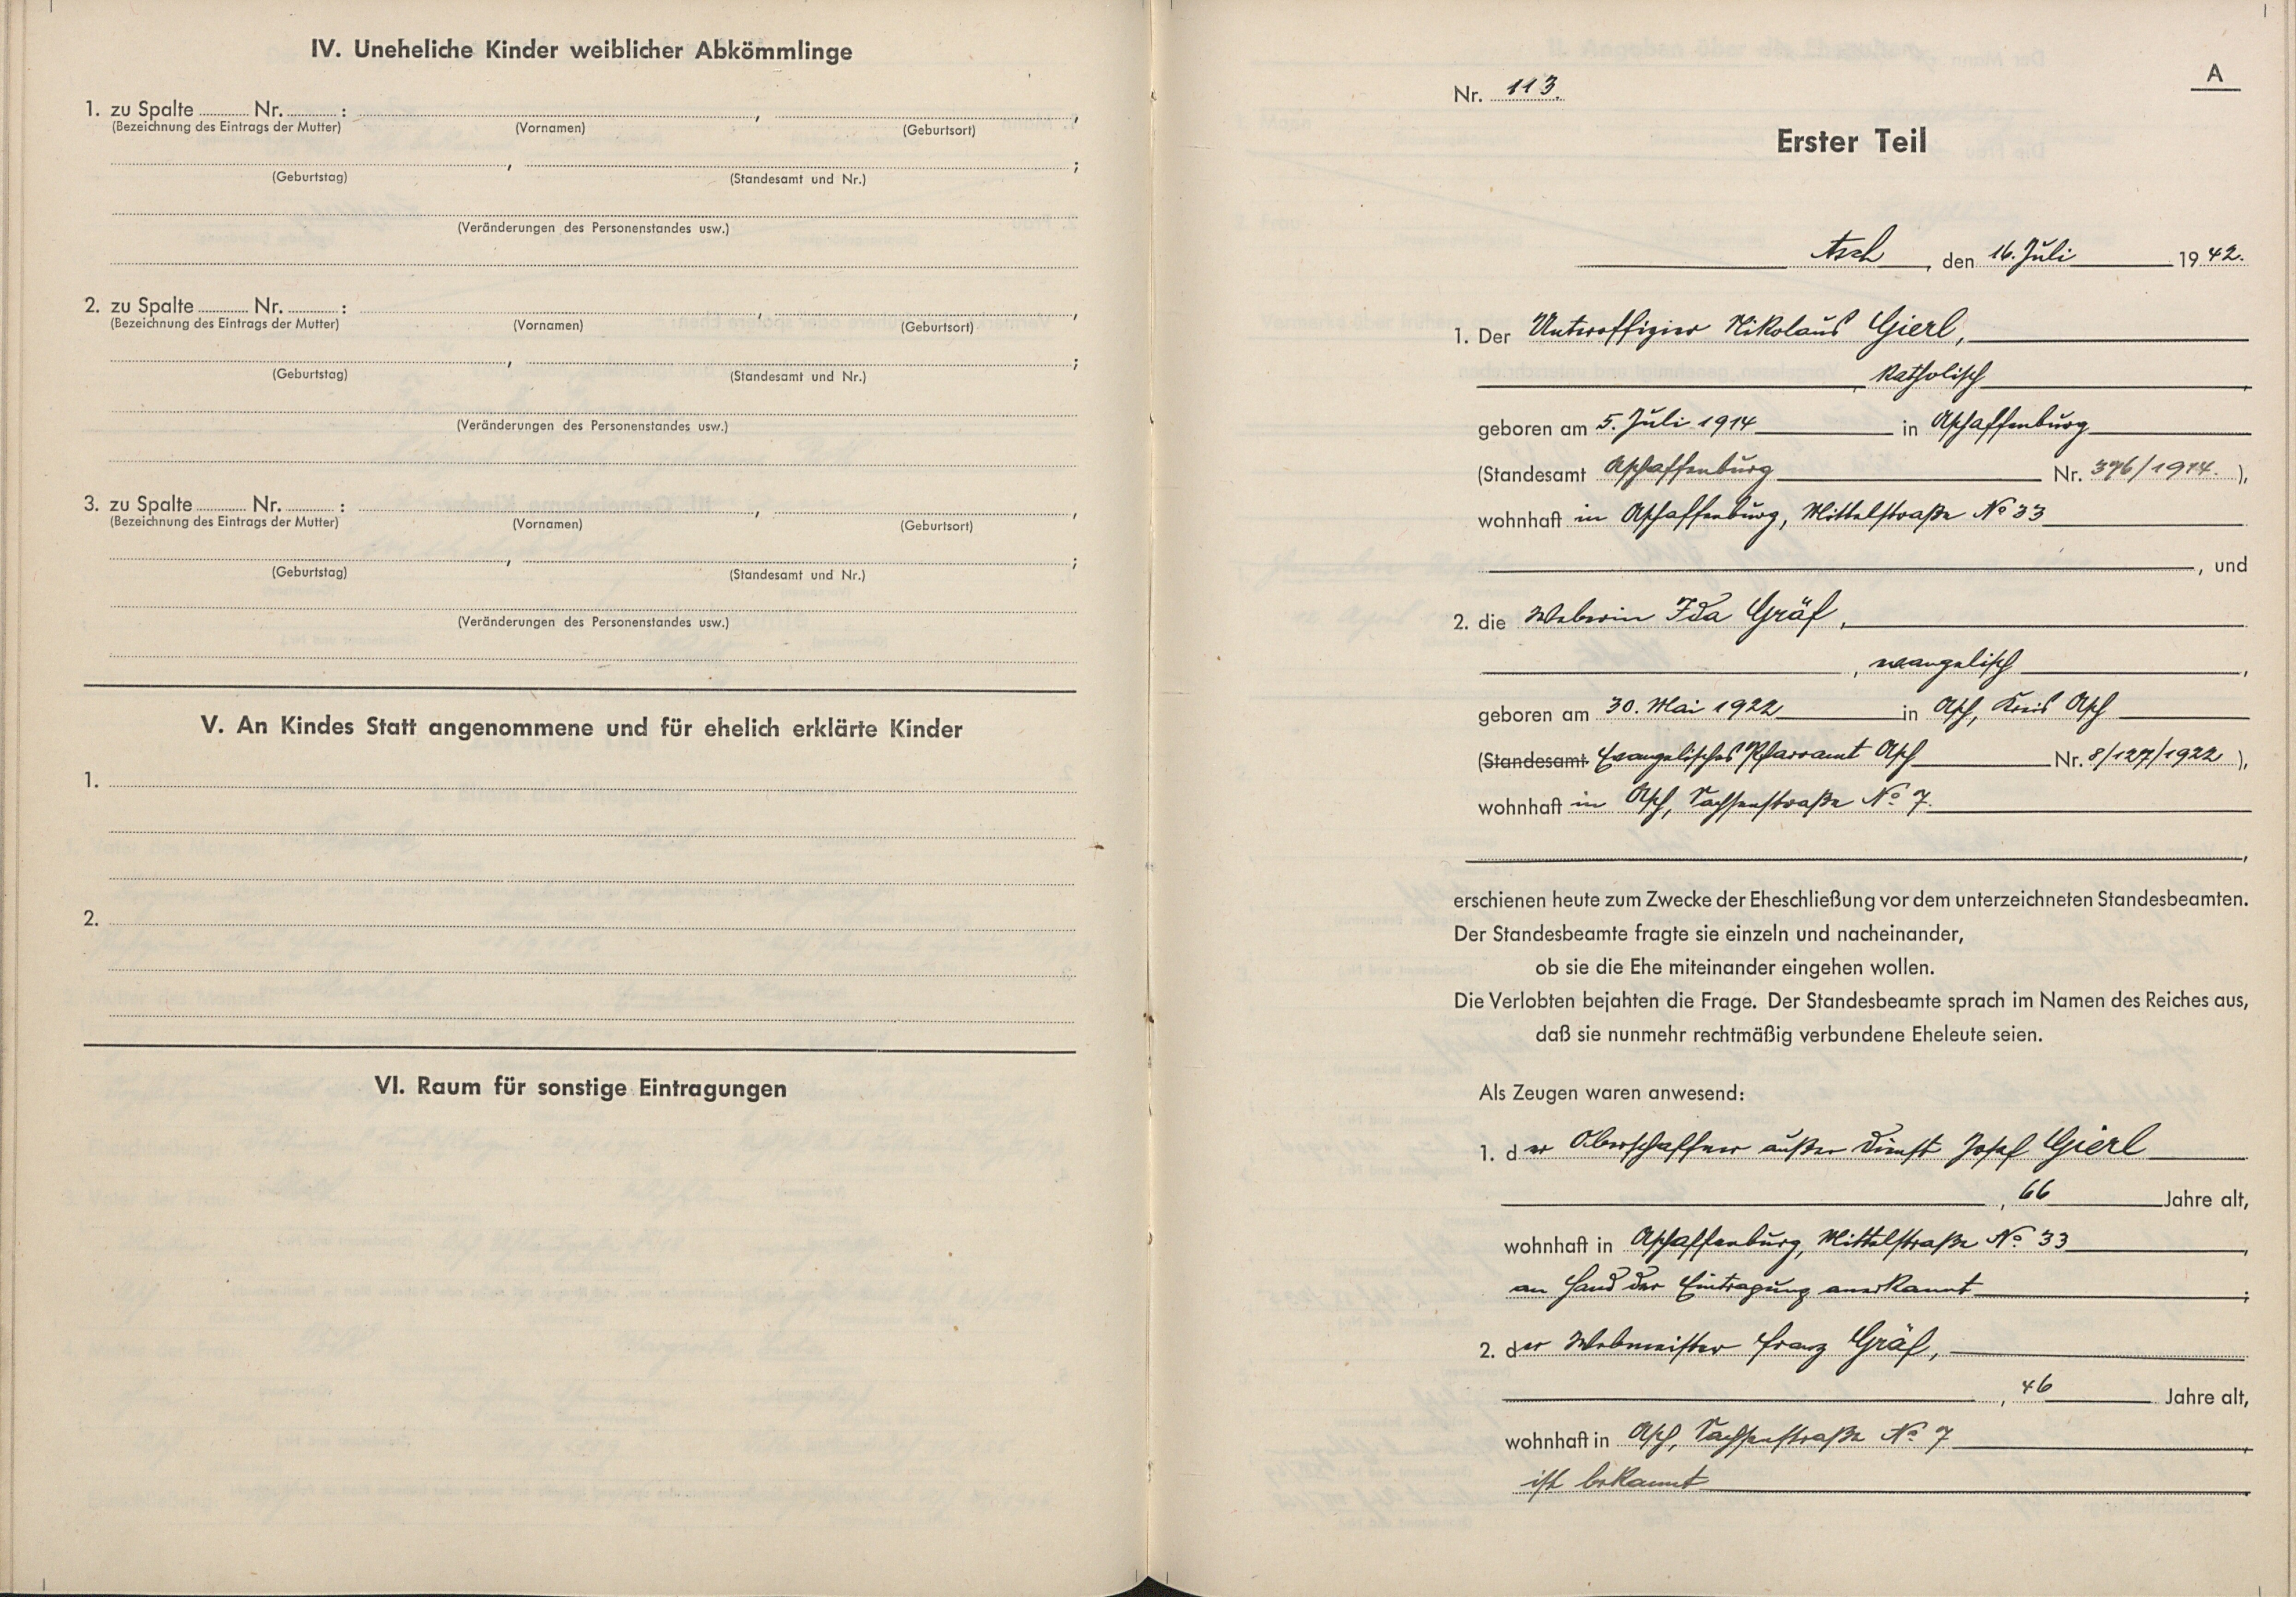 IV. Uneheliche Kinder weiblicher Abkömmlinge
1. zu Spalte ........ Nr. ........ : , ,
(Bezeichnung des Eintrags der Mutter) (Vornamen) (Geburtsort)
, ;
(Geburtstag) (Standesamt und Nr.)
(Veränderungen des Personenstandes usw.)
2. zu Spalte ........ Nr. ........ : , ,
(Bezeichnung des Eintrags der Mutter) (Vornamen) (Geburtsort)
, ;
(Geburtstag) (Standesamt und Nr.)
(Veränderungen des Personenstandes usw.)
3. zu Spalte ........ Nr. ........ : , ,
(Bezeichnung des Eintrags der Mutter) (Vornamen) (Geburtsort)
, ;
(Geburtstag) (Standesamt und Nr.)
(Veränderungen des Personenstandes usw.)
V. An Kindes Statt angenommene und für ehelich erklärte Kinder
1.
2.
VI. Raum für sonstige Eintragungen
A
Nr. 113.
Erster Teil
Asch, den 16. Juli 1942.
1. Der Unteroffizier Nikolaus Gierl,
, katholisch,
geboren am 5. Juli 1914 in Aschaffenburg
(Standesamt Aschaffenburg Nr. 376/1914.),
wohnhaft in Aschaffenburg, Mittelstraße No 33
, und
2. die Weberin Ida Gräf,
, evangelisch,
geboren am 30. Mai 1922 in Asch, Kreis Asch
(Standesamt Evangelisches Pfarramt Asch Nr. 8/127/1922),
wohnhaft in Asch, Sachsenstraße No 7.
,
erschienen heute zum Zwecke der Eheschließung vor dem unterzeichneten Standesbeamten.
Der Standesbeamte fragte sie einzeln und nacheinander,
ob sie die Ehe miteinander eingehen wollen.
Die Verlobten bejahten die Frage. Der Standesbeamte sprach im Namen des Reiches aus,
daß sie nunmehr rechtmäßig verbundene Eheleute seien.
Als Zeugen waren anwesend:
1. der Oberschaffner außer Dienst Josef Gierl
, 66 Jahre alt,
wohnhaft in Aschaffenburg, Mittelstraße No 33,
an Hand der Eintragung anerkannt;
2. der Webmeister Franz Gräf,
, 46 Jahre alt,
wohnhaft in Asch, Sachsenstraße No 7,
ist bekannt